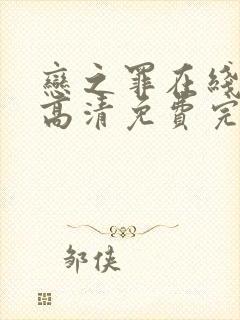 戀之罪在綫
高清免費完
邹俠